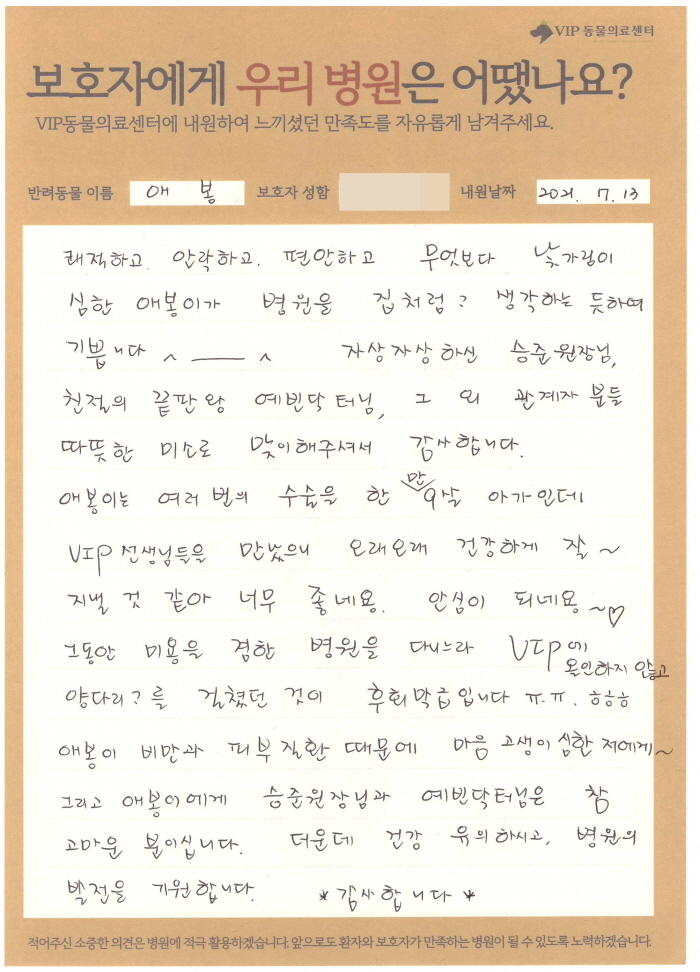 VIP 동물의료센터
보호자에게 우리 병원은 어땠나요?
VIP동물의료센터에 내원하여 느끼셨던 만족도를 자유롭게 남겨주세요.
반려동물 이름 애봉 보호자 성함 내원날짜 2021. 7. 13
쾌적하고. 안락하고. 편안하고 무엇보다 낯가림이
심한 애봉이가 병원을 집처럼? 생각하는 듯하여
기쁩니다 ^ ___ ^ 자상자상하신 승준원장님,
친절의 끝판왕 예빈닥터님, 그 외 관계자 분들
따뜻한 미소로 맞이해주셔서 감사합니다.
애봉이는 여러 번의 수술을 한 만 9살 아가인데
VIP 선생님들을 만났으니 오래오래 건강하게 잘~
지낼 것 같아 너무 좋네용. 안심이 되네용~♡
그동안 미용을 겸한 병원을 다니느라 VIP에
올인하지 않고
양다리?를 걸쳤던 것이 후회막급입니다 ㅠ.ㅠ. ㅎㅎㅎ
애봉이 비만과 피부질환 때문에 마음 고생이 심한 저에게~
그리고 애봉이에게 승준원장님과 예빈닥터님은 참
고마운 분이십니다. 더운데 건강 유의하시고, 병원의
발전을 기원합니다. *감사합니다*
적어주신 소중한 의견은 병원에 적극 활용하겠습니다. 앞으로도 환자와 보호자가 만족하는 병원이 될 수 있도록 노력하겠습니다.